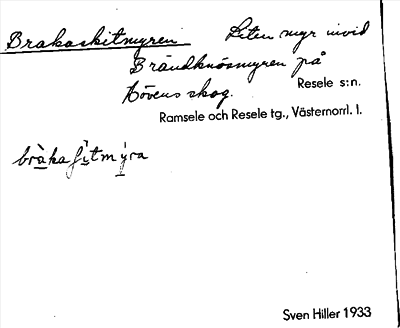 Brakaskitmyren Liten myr invid
Brändknösmyren på
Lövens skog. Resele s:n.
Ramsele och Resele tg., Västernorrl. l.
bràkaʃìtmýra
Sven Hiller 1933